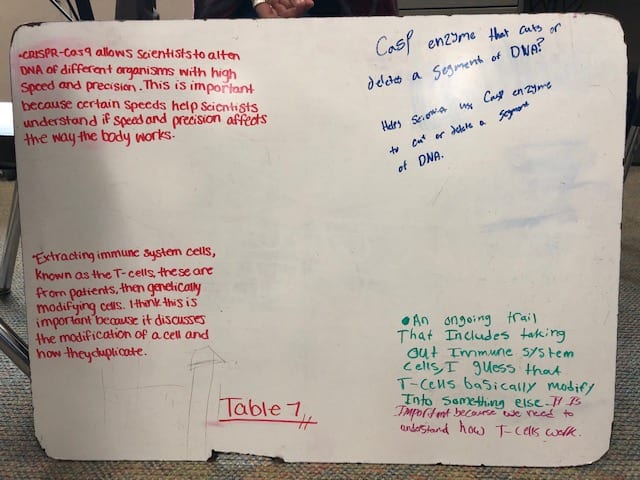 •CRISPR-Cas9 allows scientists to alter
DNA of different organisms with high
speed and precision. This is important
because certain speeds help scientists
understand if speed and precision affects
the way the body works.
Cas9 enzyme that cuts or
deletes a segment of DNA?
Helps Scientist use Cas9 enzyme
to cut or delete a segment
of DNA.
•Extracting immune system cells,
known as the T-cells, these are
from patients, then genetically
modifying cells. I think this is
important because it discusses
the modification of a cell and
how they duplicate.
•An ongoing trail
That Includes taking
out Immune system
cells, I guess that
T-cells basically modify
Into something else. It Is
Important because we need to
understand how T-cells work.
Table 7